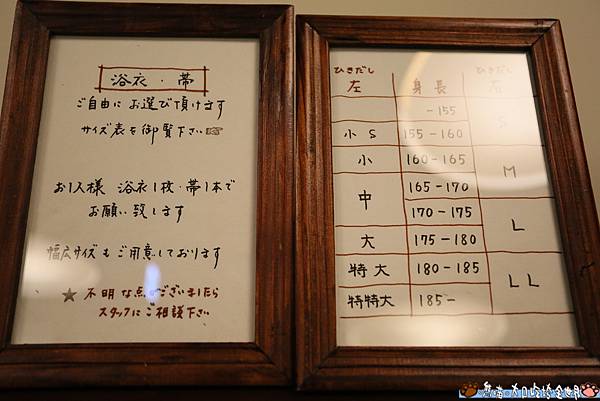 浴衣・帯
ご自由に お選び頂けます
サイズ表を御覧下さい☞
お1人様 浴衣1枚・帯1本で
お願い致します
幅広サイズもご用意しております
★ 不明な点がございましたら
スタッフにご相談下さい
ひきだし 左 身長 ひきだし 右
-155 S
小S 155-160
小 160-165 M
中 165-170
170-175 L
大 175-180
特大 180-185 LL
特特大 185-